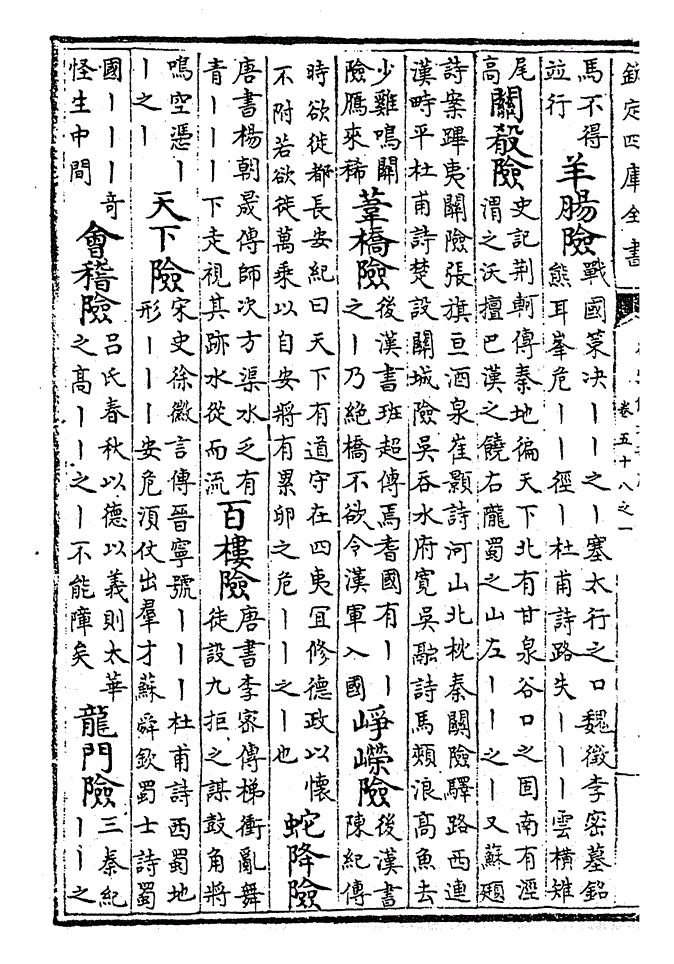 欽定四庫全書
卷五十八之一
馬不得
並行
羊腸險
戰國策决丨丨之丨塞太行之口魏徵李密墓銘
熊耳峯危丨丨徑丨杜甫詩路失丨丨丨雲橫雉
尾
高
關殽險
史記荆軻傳秦地徧天下北有甘泉谷口之固南有涇
渭之沃擅巴漢之饒右隴蜀之山左丨丨之丨又蘇頲
詩案蹕夷關險張旗亘酒泉崔顥詩河山北枕秦關險驛路西連
漢畤平杜甫詩楚設關城險吳吞水府寛吳融詩馬頰浪髙魚去
少雞鳴關
險鴈來稀
葦橋險
後漢書班超傳焉耆國有丨丨
之丨乃絶橋不欲令漢軍入國
崢嶸險
後漢書
陳紀傳
時欲徙都長安紀曰天下有道守在四夷宜修德政以懷
不附若欲徙萬乘以自安將有累卵之危丨丨之丨也
蛇降險
唐書楊朝晟傳師次方渠水乏有
青丨丨丨下走視其跡水從而流
百樓險
唐書李密傳梯衝亂舞
徒設九拒之謀鼓角將
鳴空憑丨
丨之丨
天下險
宋史徐徽言傳晉寧號丨丨丨杜甫詩西蜀地
形丨丨丨安危湏仗出羣才蘇舜欽蜀士詩蜀
國丨丨丨奇
怪生中間
會稽險
吕氏春秋以德以義則太華
之髙丨丨之丨不能障矣
龍門險
三秦紀
丨丨之